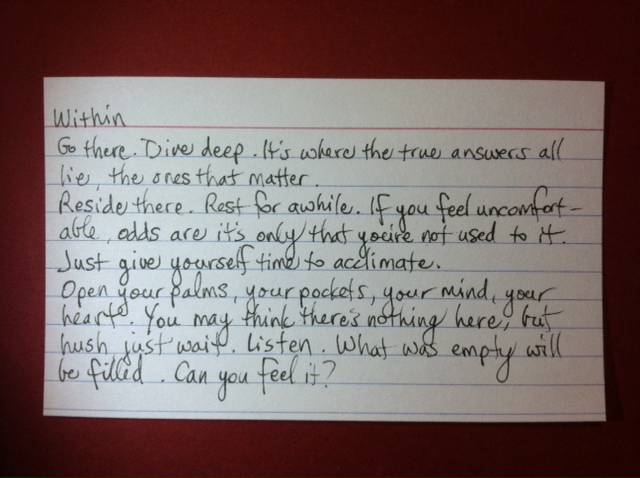 Within
Go there. Dive deep. It's where the true answers all
lie, the ones that matter.
Reside there. Rest for awhile. If you feel uncomfort-
able, odds are it's only that you're not used to it.
Just give yourself time to acclimate.
Open your palms, your pockets, your mind, your
heart. You may think there's nothing here, but
hush, just wait. Listen. What was empty will
be filled. Can you feel it?